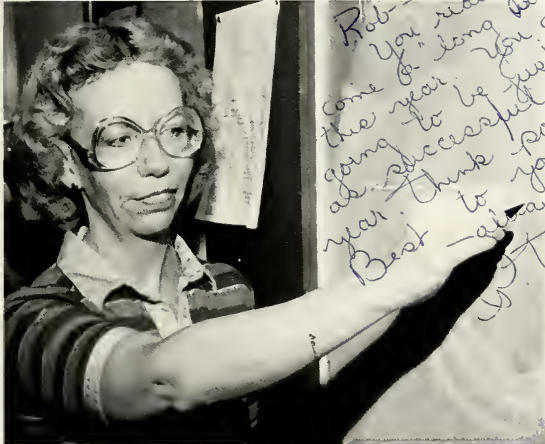 Rob—
You rea
come a long
this year. You
going to be just
as successful
year. Think
Best to yo